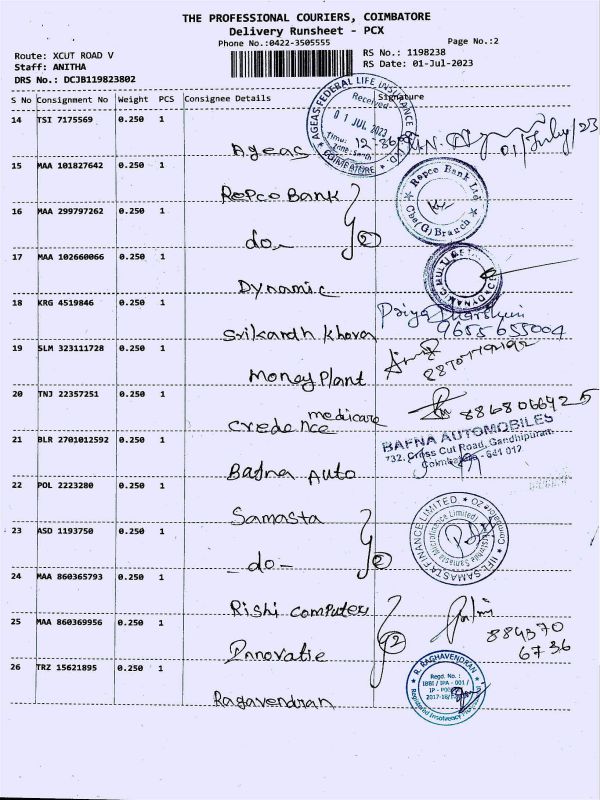 THE PROFESSIONAL COURIERS, COIMBATORE
Delivery Runsheet - PCX
Phone No.:0422-3505555
Page No.:2
Route: XCUT ROAD V
RS No.: 1198238
Staff: ANITHA
RS Date: 01-Jul-2023
DRS No.: DCJB119823802
S No Consignment No Weight PCS Consignee Details Signature
14 TSI 7175569 0.250 1
Ageas
AGEAS FEDERAL LIFE INSURANCE
Received
01 JUL 2023
Time: 12-36
COIMBATORE
01/July/23
15 MAA 101827642 0.250 1
Repco Bank
Repco Bank Ltd
Cbe(G) Branch
16 MAA 299797262 0.250 1
do
2
17 MAA 102660066 0.250 1
Dynamic
DYNAMIC MULTI
18 KRG 4519846 0.250 1
Priya Dharshini
9655655004
Srikardh Khover
19 SLM 323111728 0.250 1
Money Plant
20 TNJ 22357251 0.250 1
medicare
8868066425
credence
21 BLR 2701012592 0.250 1
BAFNA AUTOMOBILES
732, Cross Cut Road, Gandhipuram
Coimbatore - 641 012
Bafna Auto
22 POL 2223280 0.250 1
Samasta
IIFL SAMASTA FINANCE LIMITED
(Formerly Samasta Microfinance Limited)
Coimbatore
23 ASD 1193750 0.250 1
do
2
24 MAA 860365793 0.250 1
Rishi computer
25 MAA 860369956 0.250 1
884370
6736
Innovatie
2
26 TRZ 15621895 0.250 1
R. RAGHAVENDRAN
Regd. No. :
IBBI / IPA - 001 /
Registered Insolvency
Ragavendran